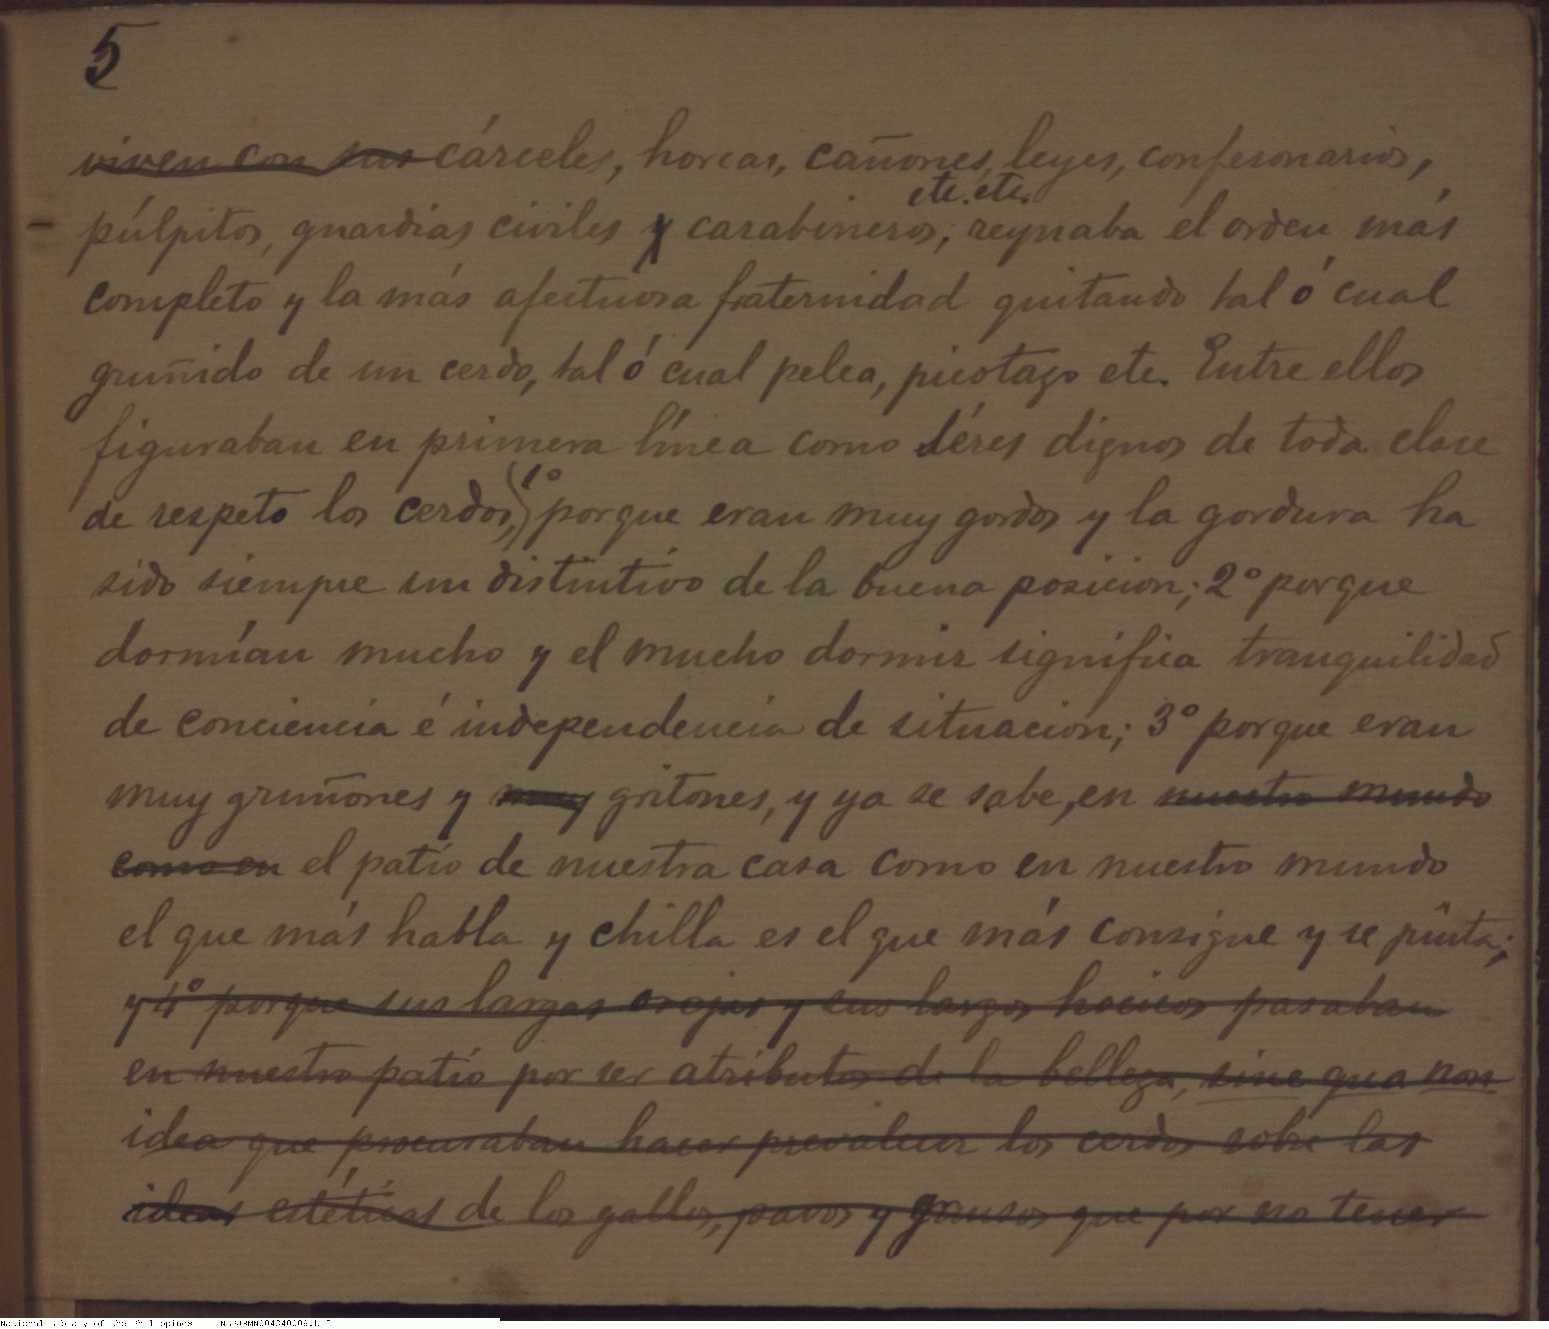 5
viven con sus cárceles, horcas, cañones, leyes, confesonarios,
etc. etc.
púlpitos, guardias civiles y carabineros; reynaba el orden más
completo y la más afectuosa fraternidad quitando tal ó cual
gruñido de un cerdo, tal ó cual pelea, picotazo etc. Entre ellos
figuraban en primera línea como séres dignos de toda clase
de respeto los cerdos, 1º porque eran muy gordos y la gordura ha
sido siempre un distintivo de la buena posicion; 2º porque
dormían mucho y el mucho dormir significa tranquilidad
de conciencia é independencia de situacion; 3º porque eran
muy gruñones y muy gritones, y ya se sabe, en nuestro mundo
como en el patio de nuestra casa como en nuestro mundo
el que más habla y chilla es el que más consigue y se pinta;
y 4º porque sus largas orejas y sus largos hocicos pasaban
en nuestro patio por ser atributos de la belleza, sine qua non
idea que procuraban hacer prevalecer los cerdos sobre las
ideas estéticas de los gallos, pavos y gansos que por no tener
National Library of the Philippines